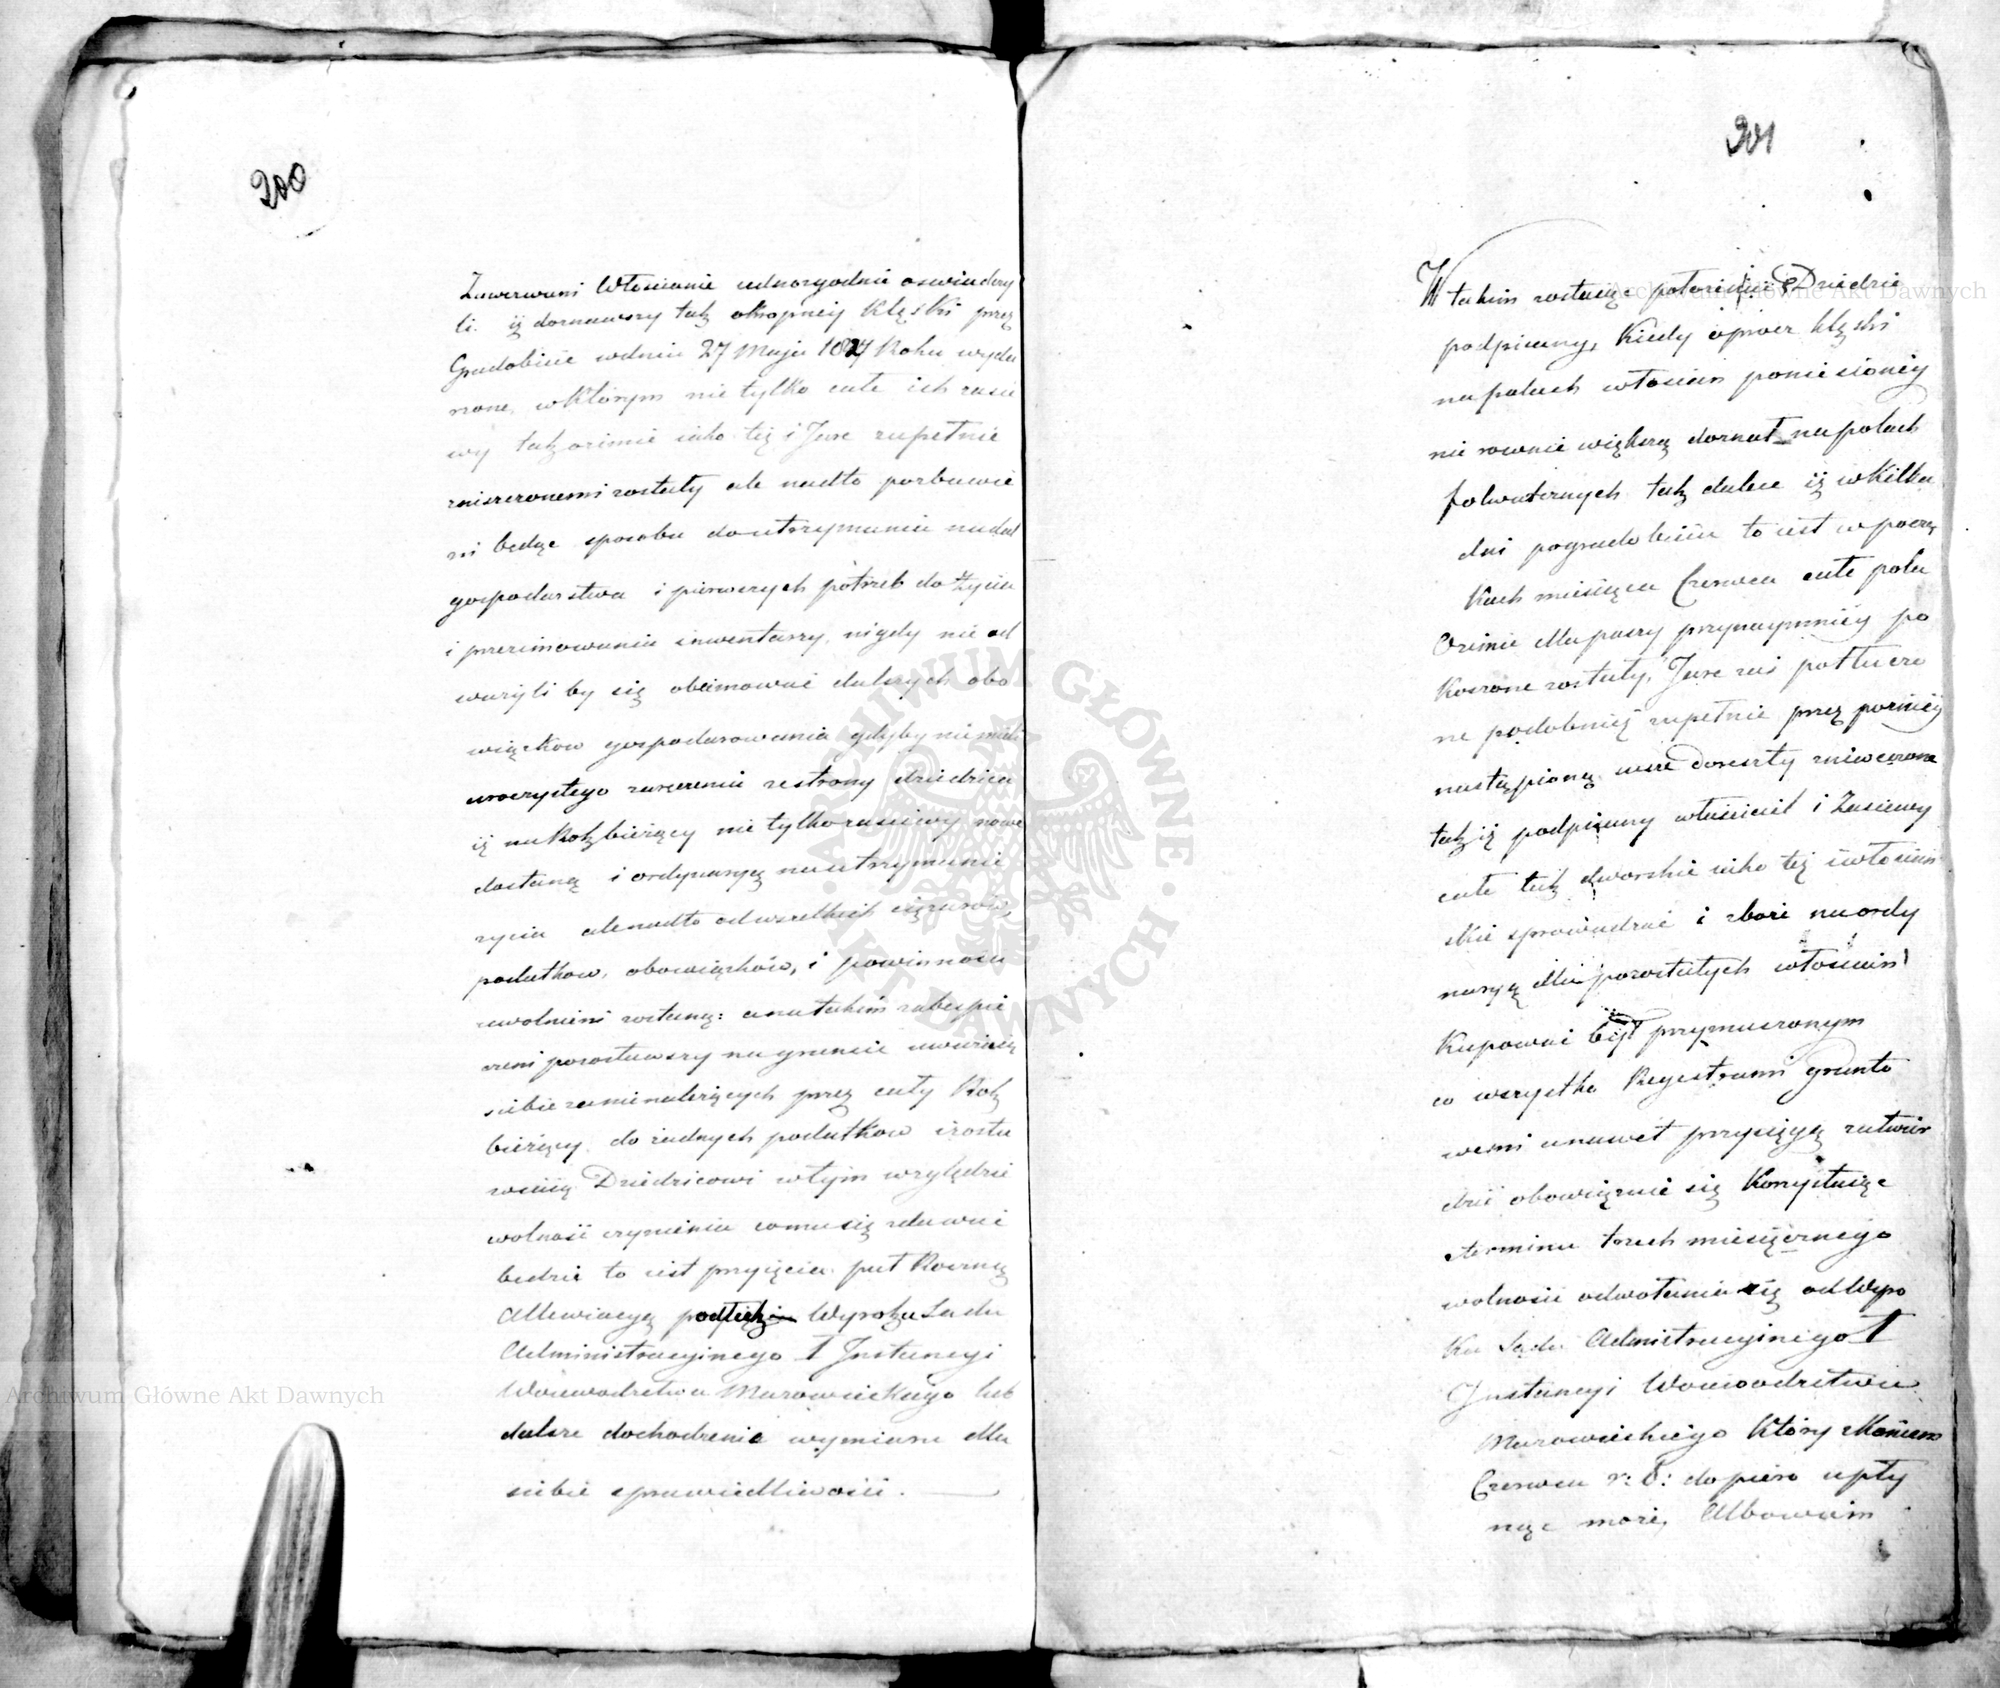 200
Zawezwani Włościanie iednozgodnie oswiadczy
li iż doznawszy tak okropney Klęski przez
Gradobicie w dniu 27 Maja 1827 Roku wyda
rzone, w którym nie tylko całe ich zasie
wy tak ozimie iako też i Jare zupełnie
zniszczonemi zostały ale nadto pozbawie
ni będąc sposobu do utrzymania nadal
gospodarstwa i pierwszych potrzeb do życia
i przezimowania inwentarzy, nigdy nie od
ważyli by się obeimować dalszych obo
wiązkow gospodarowania gdyby nie mieli
uroczystego zaręczenia ze strony dziedzica
iż na Rok bieżący nie tylko zasiewy nowe
dostaną i ordynaryą na utrzymanie
życia ale nadto od wszelkich ciężarów,
podatkow, obowiązków, i powinności
uwolnieni zostaną: a na takim zabezpie
czeni pozostawszy na gruncie uważaią
siebie za nienależących przez cały Rok
bieżący do żadnych podatkow i zosta
wuią Dziedzicowi w tym względzie
wolność czynienia co mu się zdawać
będzie to iest przyięcia puł Roczney
Allewiacyą podług Wyroku Sądu
Administracyinego 1 Instancyi
Woiewodztwa Mazowieckiego lub
dalsze dochodzenie wymiaru dla
siebie sprawiedliwości.
201
W takim zostaiąc położeniu Dziedzic
podpisany, Kiedy oprócz klęski
na polach włościan poniesioney
nie rownie większą doznał na polach
folwarcznych tak dalece iż w Kilka
dni po gradobiciu to iest w począ
tkach miesiąca Czerwca całe pola
Ozimie dla paszy przynaymniey po
Koszone zostały, Jare zaś potłuczo
ne podobnież zupełnie przez poźniey
nastąpioną do reszty zniweczone
tak iż podpisany właściciel i Zasiewy
całe tak dworskie iako też i włościań
skie sprowadzać i zboże na ordy
naryą dla pozostałych włościan
Kupować był przymuszonym
co wszystko Regestrami grunto
wemi a nawet przysięgą zatwier
dzić obowiązuie się Korzystaiąc
z terminu trzech miesięcznego
wolności odwołania się od Wyro
ku Sądu Administracyinego 1
Instancyi Woiewodztwa
Mazowieckiego Który z Końcem
Czerwca r: b: dopiero upły
nąć może, Albowiem
Archiwum Główne Akt Dawnych
Archiwum Główne Akt Dawnych
ARCHIWUM GŁÓWNE AKT DAWNYCH